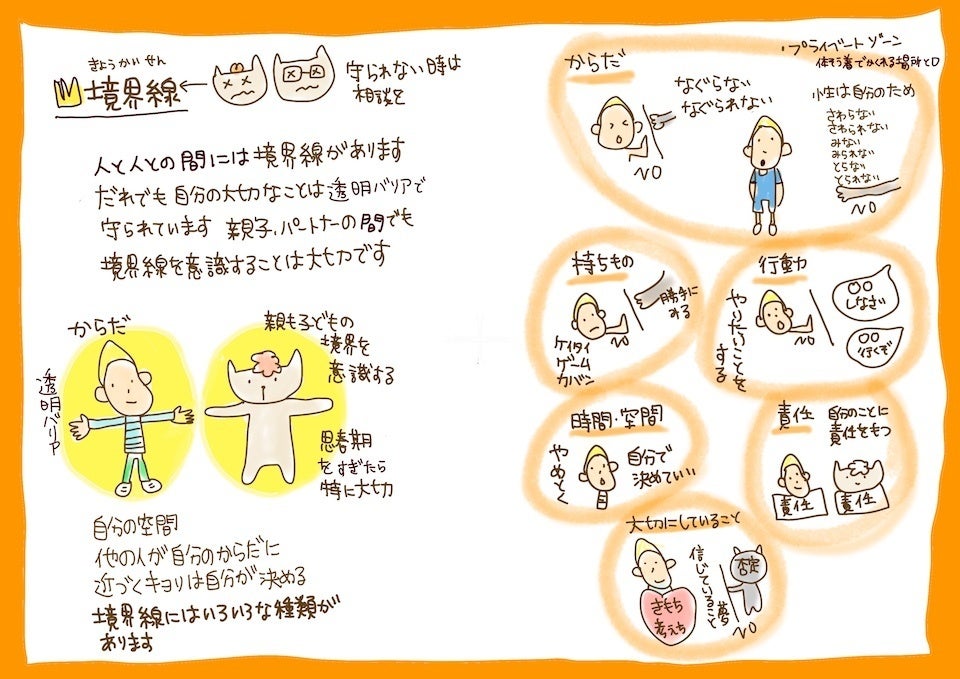 きょうかい せん
境界線
守られない時は
相談を
人と人との間には境界線があります
だれでも自分の大切なことは透明バリアで
守られています 親子、パートナーの間でも
境界線を意識することは大切です
からだ
透明バリヤ
親も子どもの
境界を
意識する
思春期
をすぎたら
特に大切
自分の空間
他の人が自分のからだに
近づくキョリは自分が決める
境界線にはいろいろな種類が
あります
からだ
なぐらない
なぐられない
NO
・プライベートゾーン
体そう着でかくれる場所と口
小生は自分のため
さわらない
さわられない
みない
みられない
とらない
とられない
NO
持ちもの
勝手に
みる
NO
ケイタイ
ゲーム
カバン
行動
やりたいことを
する
NO
○○
しなさい
○○
行くぞ
時間・空間
やめとく
自分で
決めていい
責任
自分のことに
責任をもつ
責任
責任
大切にしていること
きもち
考え
信じていること
夢
否定
NO